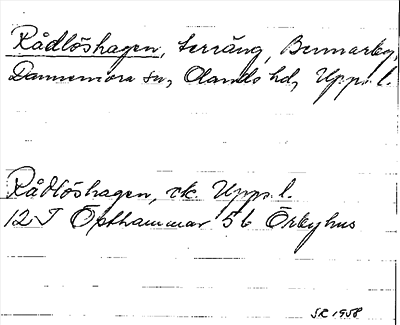 Rådlöshagen, terräng, Bennarby,
Dannemora sn, Olands hd, Upps. l.
Rådlöshagen, ck. Upps. l.
12 I Östhammar 5 b Örbyhus
SR 1958